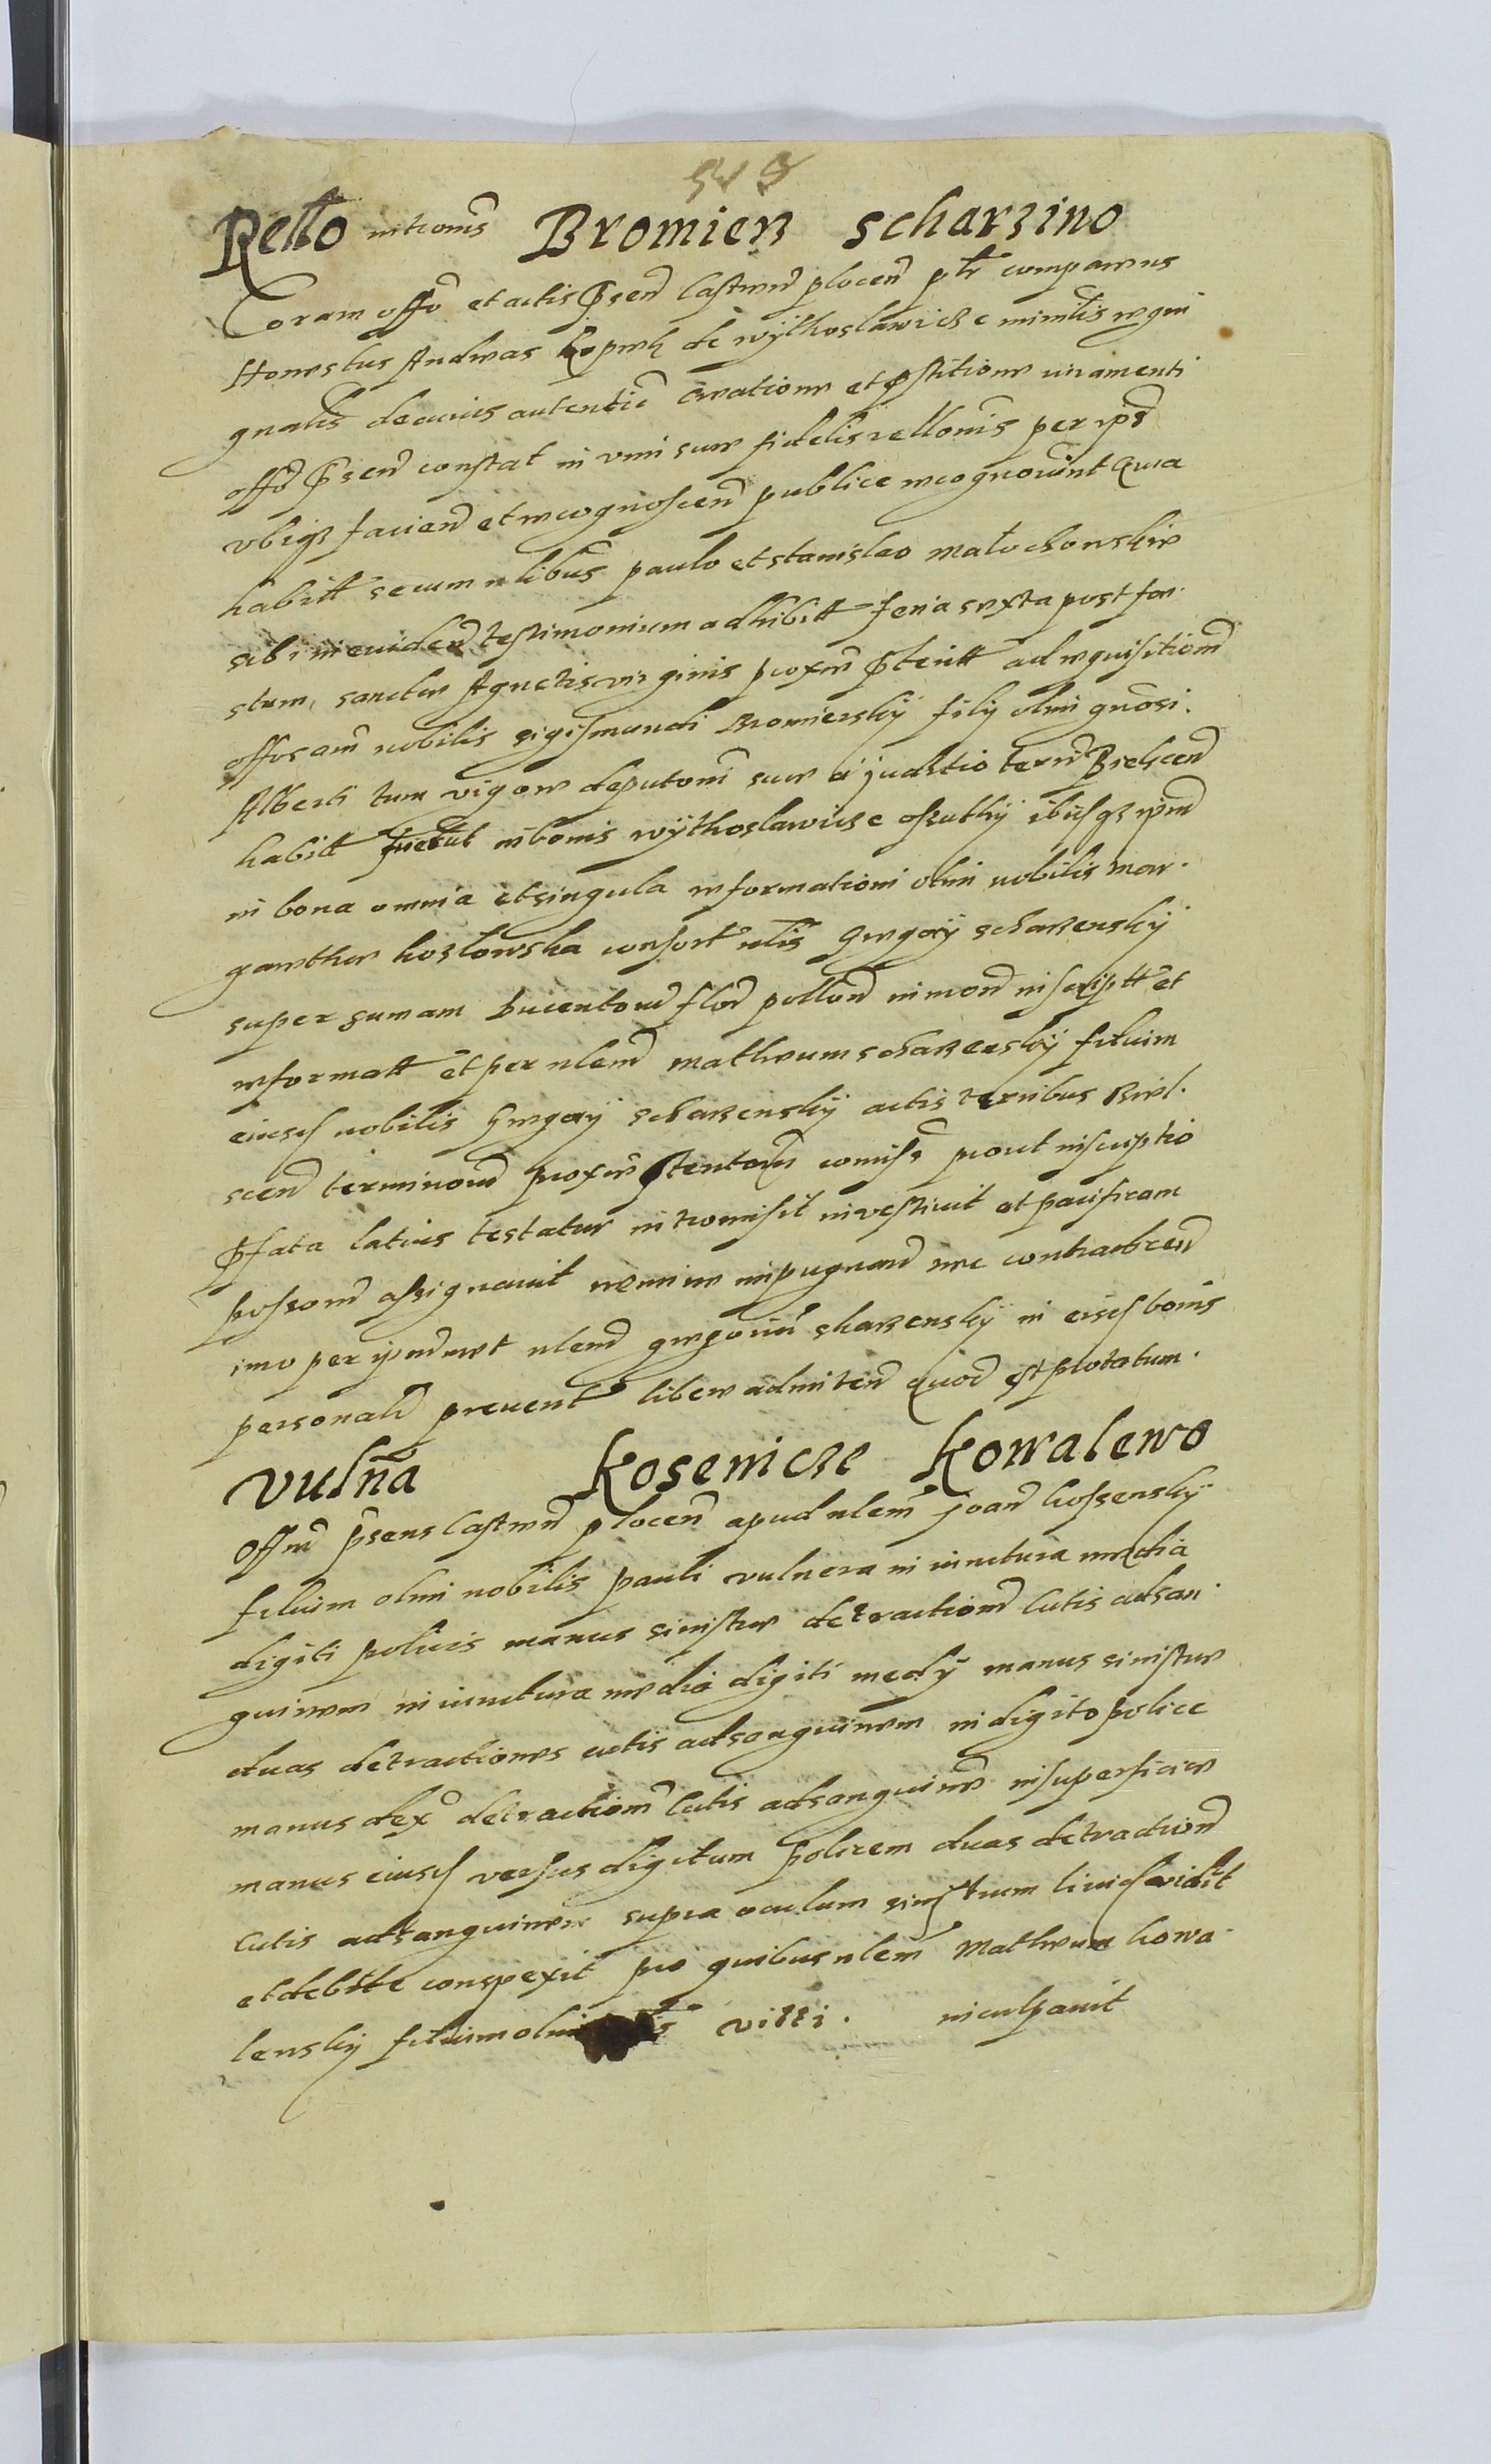 Rello intromis Bromierz scharzino
Coram offo et actis psen Castren plocen pltr comparens
Honestus Andreas de wythoslawicze minlis regni
gnalis de cuius autentic creatione et pstitione iuramenti
offo psen constat in vim sue fidelis rellonis per ipm
vbiqz faciend et recognoscend publice recognovint Quia
habitt secum nlibus paulo et stanislao malochowskie
sibi in eviden testimonium adhibitt feria sexta post fes
stum sanctae Agnetis virginis proxme pteritt ad requisitionem
offosam nobilis sigismundi Bromiersky fily olim gnosi
Alberti tum vigore deputoni sue a juditio terr Bielscen
habitt fuerat in bonis wythoslawicze osuthy ibusqz ipm
in bona omnia et singula reformationi olim nobilis mar
garethae kozlowska consort nlis Gregory scharzensky
super sumam ducentorum flor pollon in mon inscriptt et
reformatt et per nlem matheum scharzensky filium
eiusd nobilis Gregory scharzensky actis terribus Biel
scen terminorum proxme ptentorum comiss prout inscriptio
pfata latius testatur intromisit investivit et pacificam
possionem assignavit nemine impugnan nec contradicen
imo per ipm nlem gregorium sharzensky in eisd bonis
personalr preuent libere admitten Quod est protatum
vulna Kosemicze Kowalewo
Offm psens Castren plocen apud nlem joan kossensky
filium olim nobilis pauli vulnera in iunctura media
digiti policis manus sinistrae detractionem Cutis ad san
guinem in iunctura media digiti medy manus sinistrae
duas detractiones cutis ad sanguinem in digito police
manus dex detractionem Cutis ad sanguinem in superficie
manus eiusd versus digitum policem duas detraction
Cutis ad sanguinem supra oculum sinistrum livid vidit
et debite conspexit pro quibus nlem Matheum kowa
lensky filium olim vitti. inculpavit